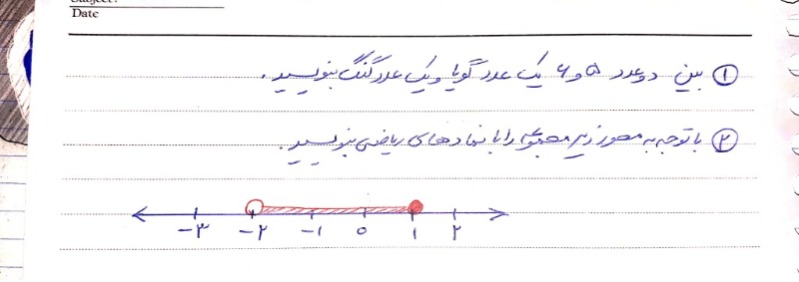 Date
① بین دو عدد ۵ و ۶ یک عدد گویا و یک عدد گنگ بنویسید.
② با توجه به محور زیر مجموعه را با نمادهای ریاضی بنویسید.
-۳ -۲ -۱ ۰ ۱ ۲